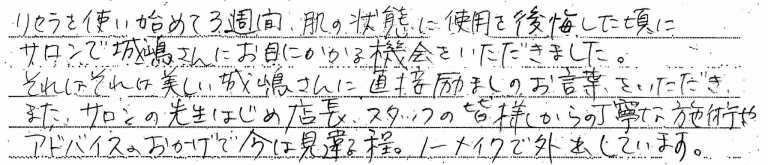 リセラを使い始めて3週間、肌の状態に使用を後悔した頃に
サロンで城嶋さんにお目にかかる機会をいただきました。
それはそれは美しい城嶋さんに直接励ましのお言葉をいただき、
また、サロンの先生はじめ店長、スタッフの皆様からの丁寧な施術や
アドバイスのおかげで今は見違る程。ノーメイクで外出しています。